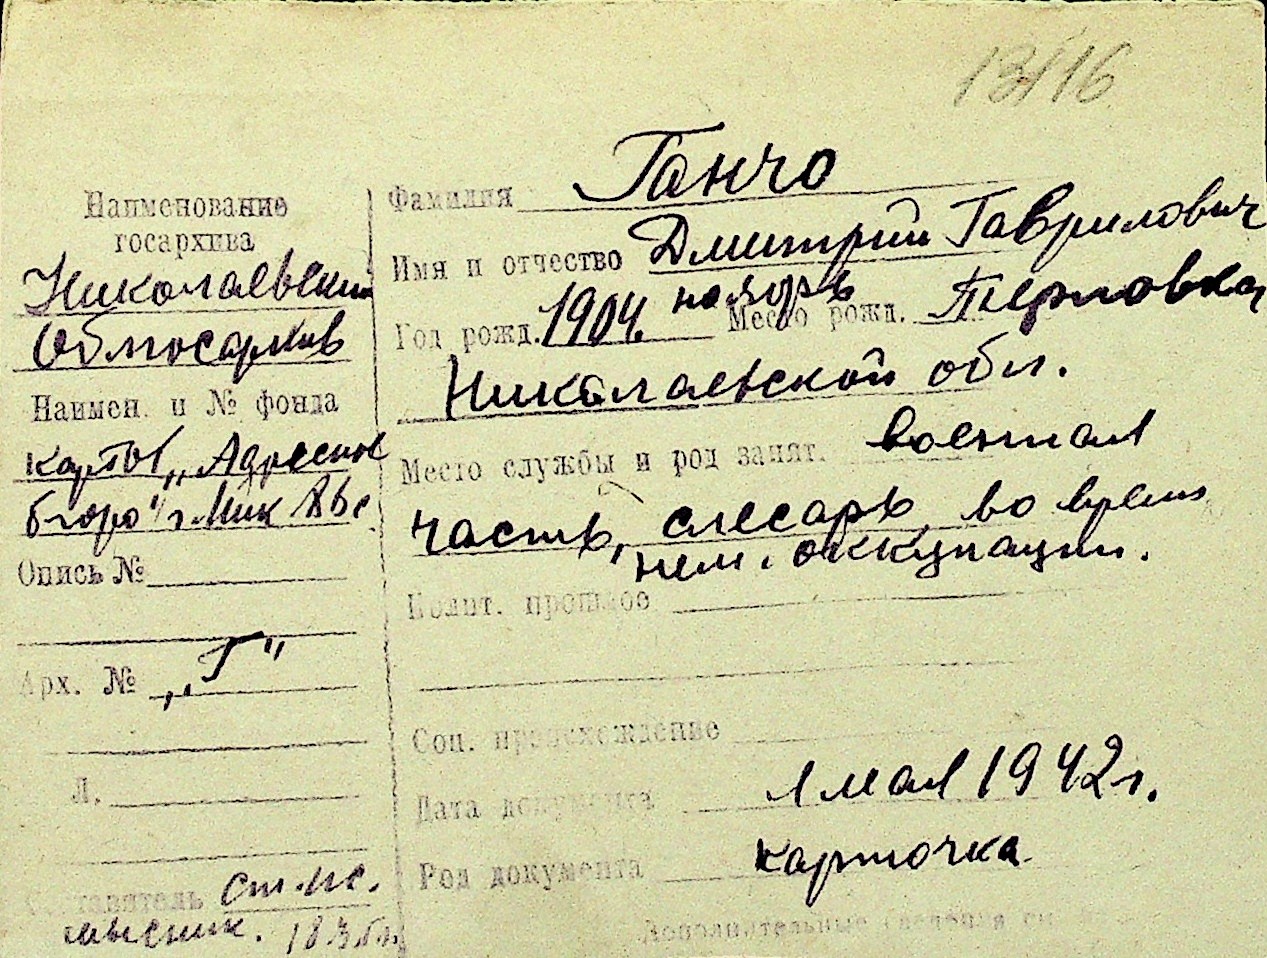 13116
Наименование
госархива
Николаевский
Облгосархив
Наимен. и № фонда
Адресное
бюро" г.
Опись №
Арх. № „Г"
Л.
Составитель ст.
Фамилия Ганчо
Имя и отчество Дмитрий Гаврилович
Год рожд. 1904 ноябрь Место рожд. Терновка
Николаевской обл.
Место службы и род занят. военная
часть, слесарь, во время
нем. оккупации.
Полит. прошлое
Соц. происхождение
Дата документа 1 мая 1942 г.
Род документа карточка
Дополнительные сведения см